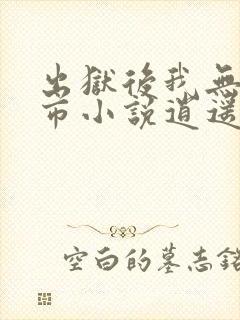 出獄後我無
市小說逍遥
空白的墓志銘